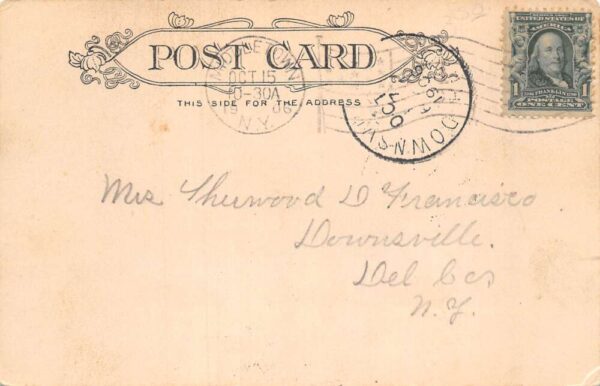 POST CARD
THIS SIDE FOR THE ADDRESS
OCT 15
10-30A
1906
N.Y.
OCT
UNITED STATES OF AMERICA
1 1
FRANKLIN
POSTAGE
ONE CENT
Mrs Sherwood D Francisco
Downsville.
Del Co
N. Y.